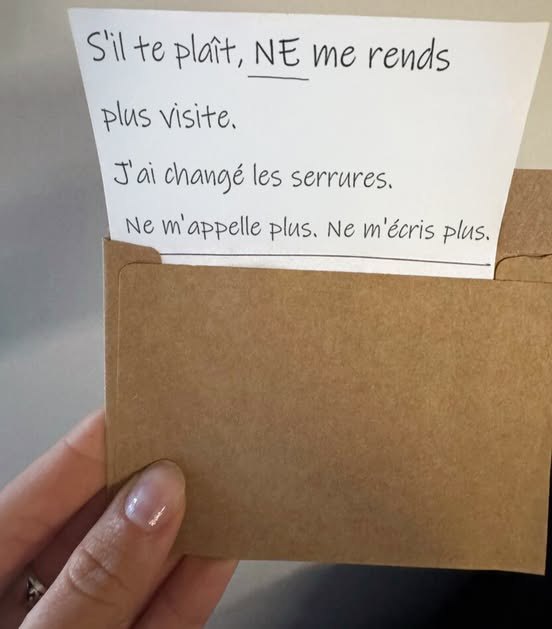 S'il te plaît, NE me rends
plus visite.
J'ai changé les serrures.
Ne m'appelle plus. Ne m'écris plus.